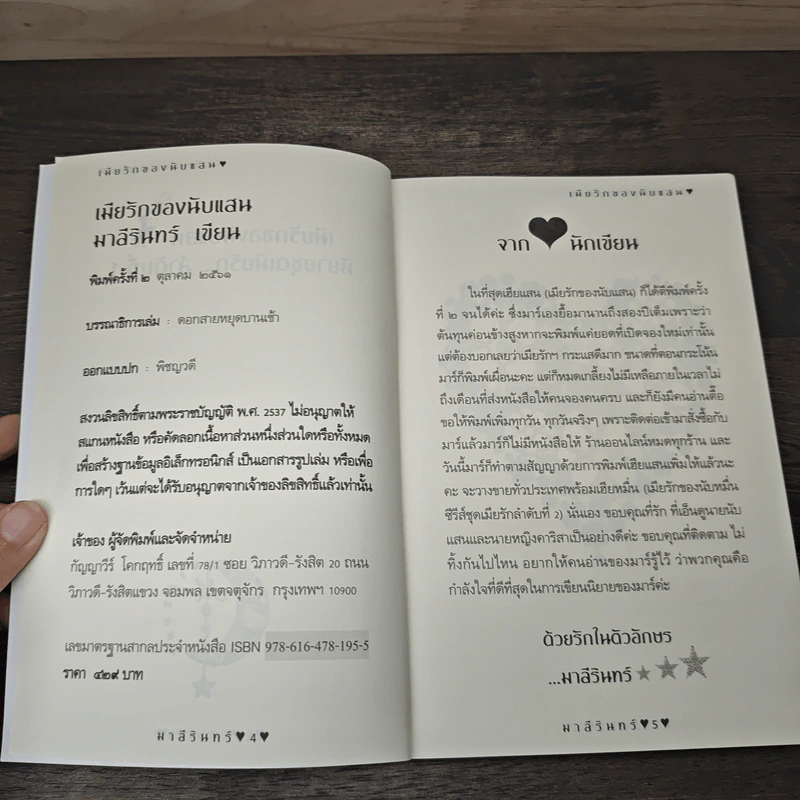 เมียรักของนับแสน♥
เมียรักของนับแสน
มาลีรินทร์ เขียน
พิมพ์ครั้งที่ ๒ ตุลาคม ๒๕๖๑
บรรณาธิการเล่ม : ดอกสายหยุดบานเช้า
ออกแบบปก : พิชญวดี
สงวนลิขสิทธิ์ตามพระราชบัญญัติ พ.ศ. 2537 ไม่อนุญาตให้
สแกนหนังสือ หรือคัดลอกเนื้อหาส่วนหนึ่งส่วนใดหรือทั้งหมด
เพื่อสร้างฐานข้อมูลอิเล็กทรอนิกส์ เป็นเอกสารรูปเล่ม หรือเพื่อ
การใดๆ เว้นแต่จะได้รับอนุญาตจากเจ้าของลิขสิทธิ์แล้วเท่านั้น
เจ้าของ ผู้จัดพิมพ์และจัดจำหน่าย
กัญญาวีร์ โคกฤทธิ์ เลขที่ 78/1 ซอย วิภาวดี-รังสิต 20 ถนน
วิภาวดี-รังสิตแขวง จอมพล เขตจตุจักร กรุงเทพฯ 10900
เลขมาตรฐานสากลประจำหนังสือ ISBN 978-616-478-195-5
ราคา ๔๒๙ บาท
มาลีรินทร์♥4♥
เมียรักของนับแสน♥
จาก ♥ นักเขียน
ในที่สุดเฮียแสน (เมียรักของนับแสน) ก็ได้ตีพิมพ์ครั้ง
ที่ ๒ จนได้ค่ะ ซึ่งมาร์เองยื้อมานานถึงสองปีเต็มเพราะว่า
ต้นทุนค่อนข้างสูงหากจะพิมพ์แค่ยอดที่เปิดจองใหม่เท่านั้น
แต่ต้องบอกเลยว่าเมียรักฯ กระแสดีมาก ขนาดที่ตอนกระโน้น
มาร์ก็พิมพ์เผื่อนะคะ แต่ก็หมดเกลี้ยงไม่มีเหลือภายในเวลาไม่
ถึงเดือนที่ส่งหนังสือให้คนจองคนครบ และก็ยังมีคนอ่านตื๊อ
ขอให้พิมพ์เพิ่มทุกวัน ทุกวันจริงๆ เพราะติดต่อเข้ามาสั่งซื้อกับ
มาร์แล้วมาร์ก็ไม่มีหนังสือให้ ร้านออนไลน์หมดทุกร้าน และ
วันนี้มาร์ก็ทำตามสัญญาด้วยการพิมพ์เฮียแสนเพิ่มให้แล้วนะ
คะ จะวางขายทั่วประเทศพร้อมเฮียหมื่น (เมียรักของนับหมื่น
ซีรีส์ชุดเมียรักลำดับที่ 2) นั่นเอง ขอบคุณที่รัก ที่เอ็นดูนายนับ
แสนและนายหญิงคาริสาเป็นอย่างดีค่ะ ขอบคุณที่ติดตาม ไม่
ทิ้งกันไปไหน อยากให้คนอ่านของมาร์รู้ไว้ ว่าพวกคุณคือ
กำลังใจที่ดีที่สุดในการเขียนนิยายของมาร์ค่ะ
ด้วยรักในตัวอักษร
...มาลีรินทร์ ★★★
มาลีรินทร์♥5♥